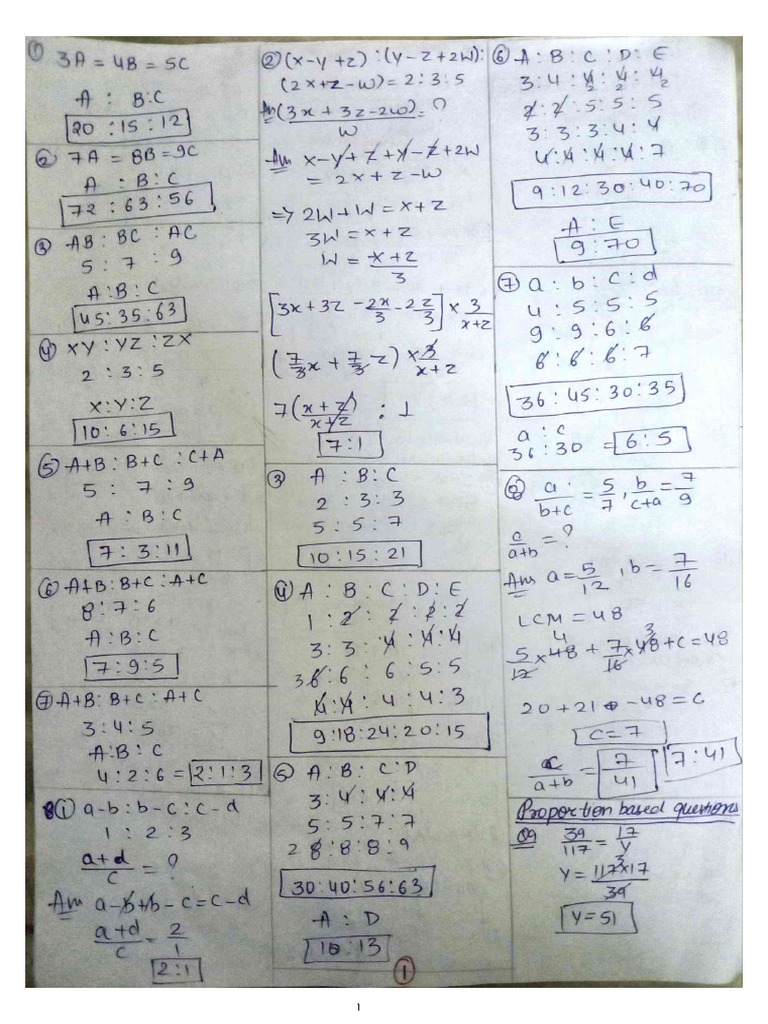 ① 3A = 4B = 5C
A : B:C
20:15:12
② 7A = 8B = 9C
A : B : C
72 : 63 : 56
③ AB : BC : AC
5 : 7 : 9
A:B:C
45:35:63
④ XY : YZ : ZX
2 : 3 : 5
X:Y:Z
10:6:15
⑤ A+B : B+C : C+A
5 : 7 : 9
A : B : C
7 : 3 : 11
⑥ A+B : B+C : A+C
8:7:6
A:B:C
7:9:5
⑦ A+B : B+C : A+C
3:4:5
A:B:C
4:2:6 = 2:1:3
① a-b : b-c : c-d
1 : 2 : 3
a+d/c = ?
Am a-b+b-c = c-d
a+d/c = 2/1
2:1
② (x-y+z) : (y-z+2w) :
(2x+z-w) = 2:3:5
(3x+3z-2w)/w = ?
Am x-y+z+y-z+2w
= 2x+z-w
=> 2w+w = x+z
3w = x+z
w = x+z/3
[3x+3z -2x/3 -2z/3] × 3/x+z
(7/3 x + 7/3 z) × 3/x+z
7(x+z/x+z) : 1
7:1
③ A : B : C
2 : 3 : 3
5 : 5 : 7
10:15:21
④ A : B : C : D : E
1 : 2 : 2 : 2 : 2
3 : 3 : 4 : 4 : 4
3 6 : 6 : 6 : 5 : 5
4 : 4 : 4 : 4 : 3
9:18:24:20:15
⑤ A : B : C : D
3 : 4 : 4 : 4
5 : 5 : 7 : 7
2 8 : 8 : 8 : 9
30:40:56:63
A : D
10:13
①
⑥ A : B : C : D : E
3 : 4 : 4 : 4 : 4
2 2 2
2 : 2 : 5 : 5 : 5
3 : 3 : 3 : 4 : 4
4 : 4 : 4 : 4 : 7
9:12:30:40:70
A : E
9:70
⑦ a : b : c : d
4 : 5 : 5 : 5
9 : 9 : 6 : 6
6 : 6 : 6 : 7
36:45:30:35
a : c
36:30 = 6:5
⑧ a/b+c = 5/7, b/c+a = 7/9
c/a+b = ?
Am a = 5/12, b = 7/16
LCM = 48
5/12 × 48 + 7/16 × 48 + c = 48
4 3
20+21 - 48 = c
c = 7
c/a+b = 7/41 7:41
Proportion based questions
Q9 39/117 = 17/y
y = 117×17/39
3
y = 51
1